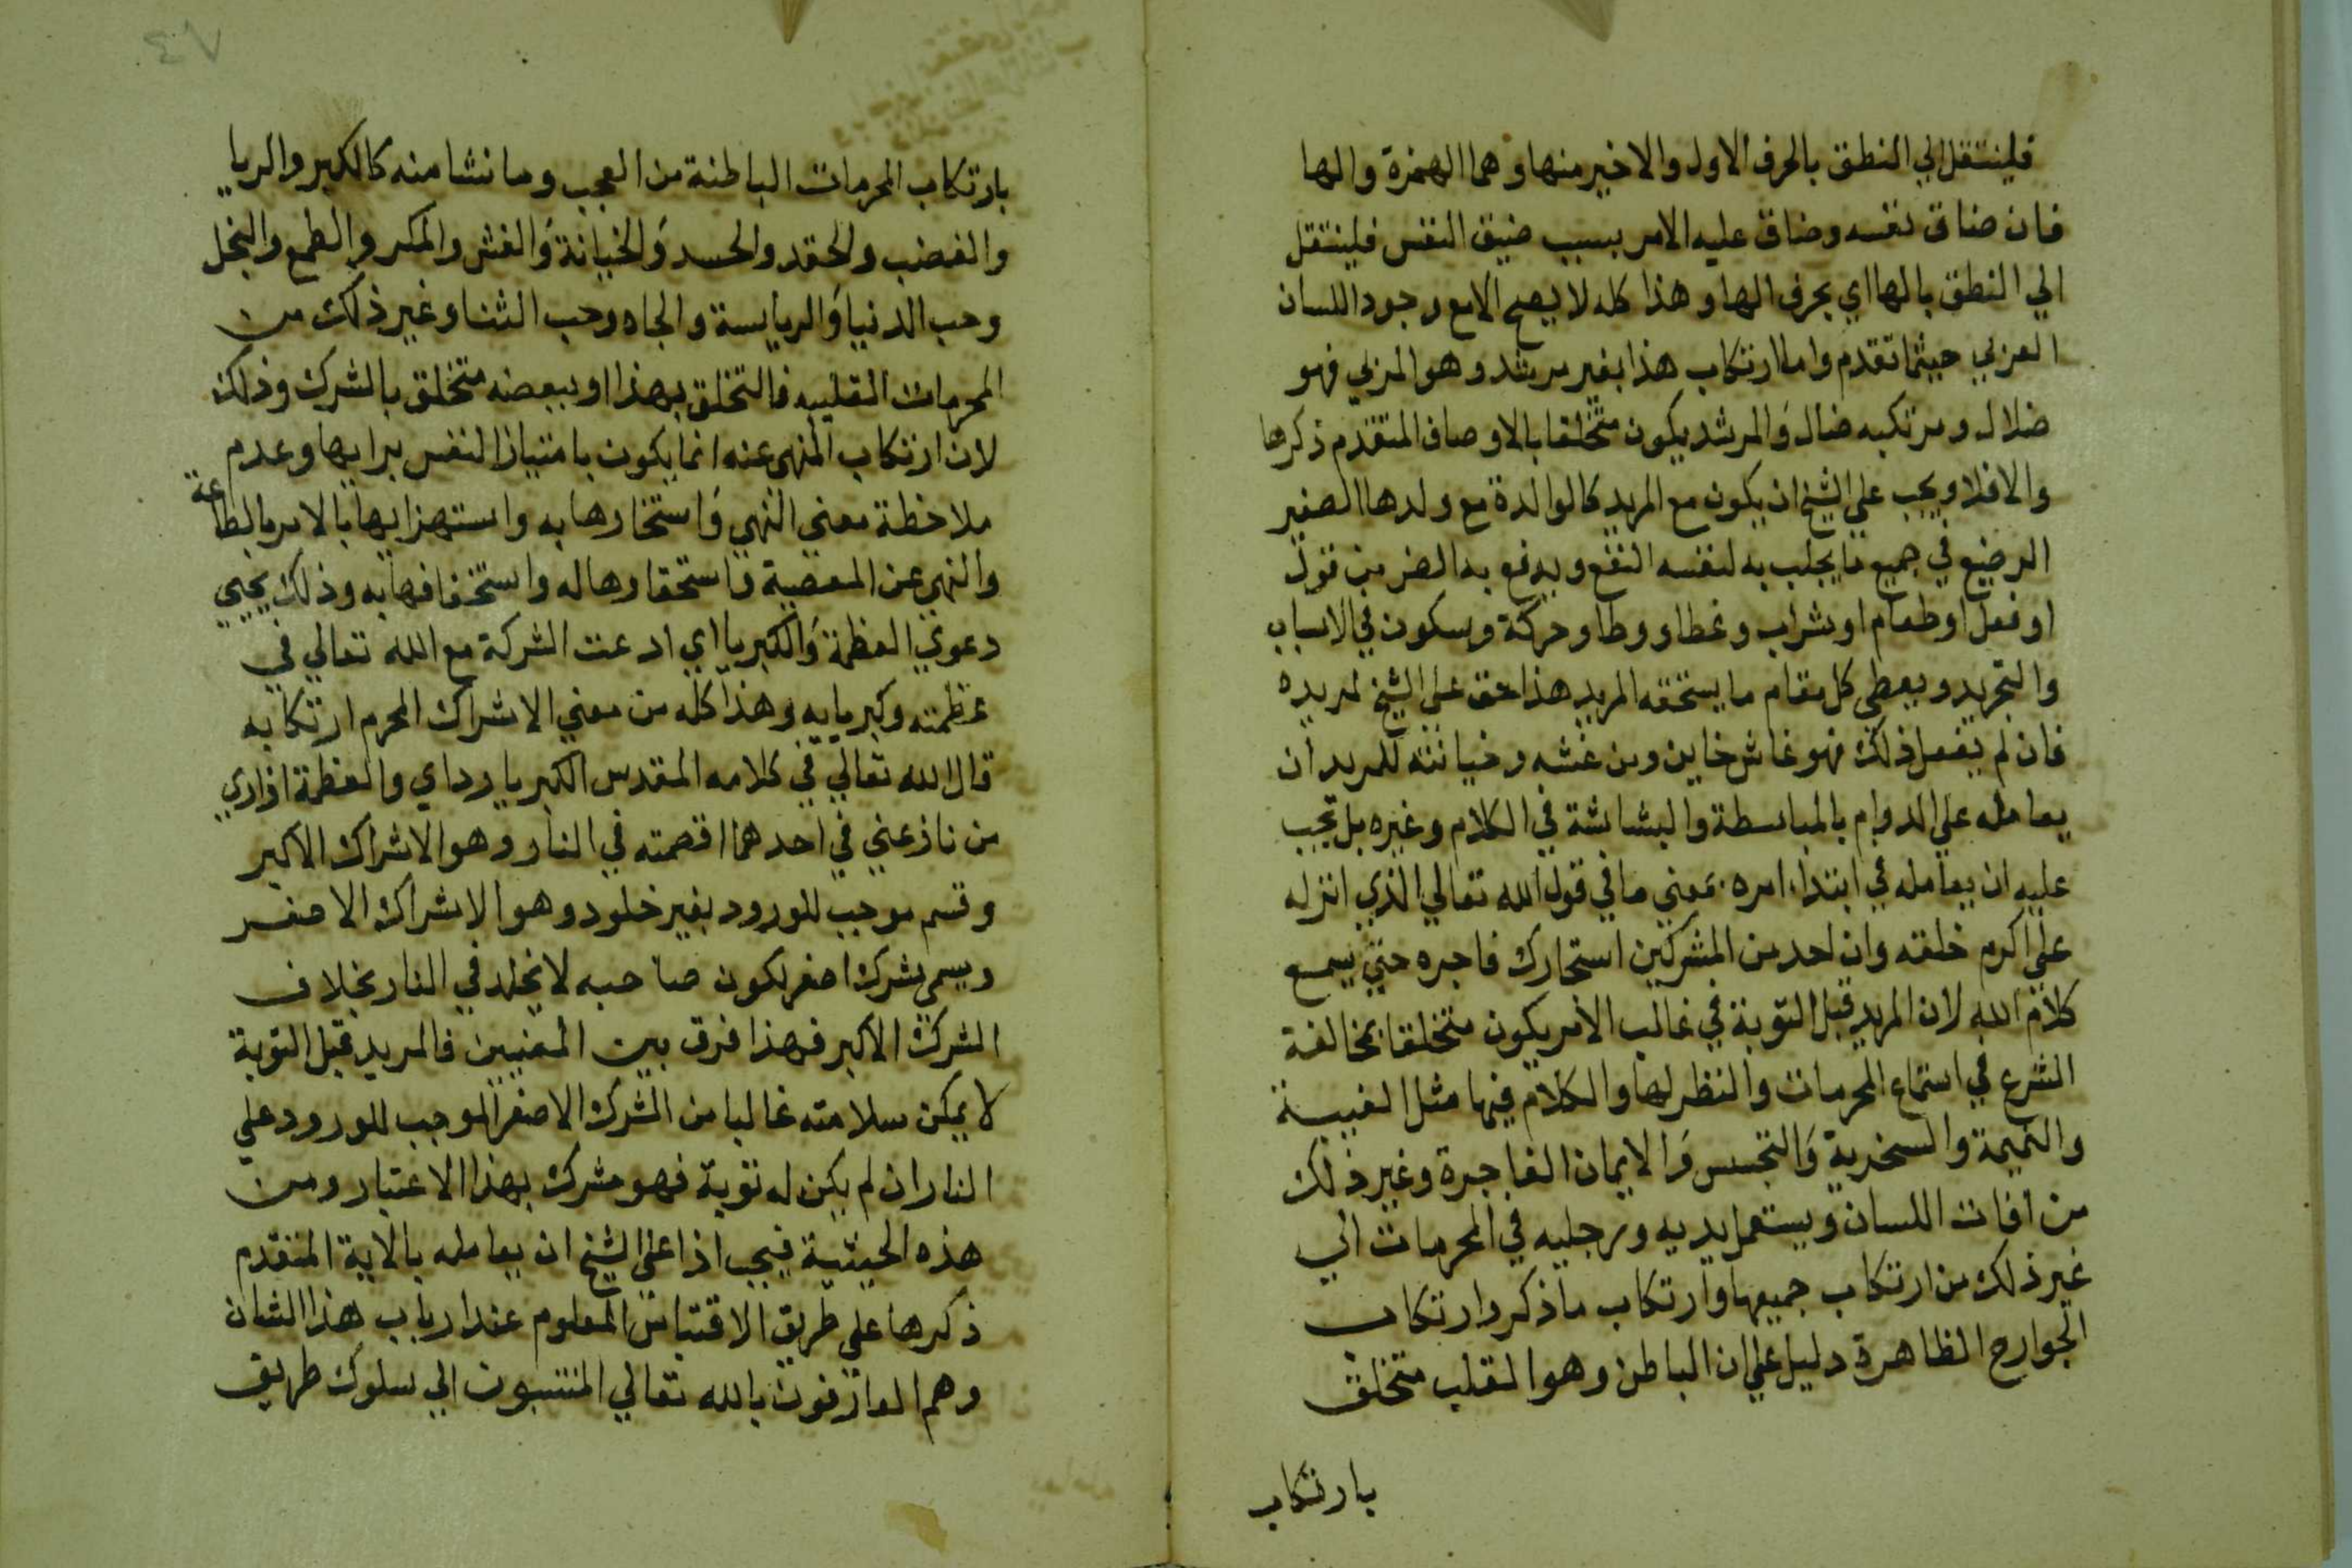 فلينتقل الي النطق بالحرف الاول والاخير منها وهما الهمزة والها
فان ضاق نفسه وضاق عليه الامر بسبب ضيق النفس فلينتقل
الي النطق بالها اي بحرف الها وهذا كله لا يصح الا مع وجود اللسان
العربي حيثما تقدم واما ارتكاب هذا بغير مرشد وهو المربي فهو
ضلال ومرتكبه ضال والمرشد يكون متخلقا بالاوصاف المتقدم ذكرها
والا فلا ويجب علي الشيخ ان يكون مع المريد كالوالدة مع ولدها الصغير
الرضيع في جميع ما يجلب به لنفسه النفع ويدفع به الضر من قول
او فعل او طعام او شراب وغطا ووطا وحركة وسكون في الاسباب
والتجريد ويعطي كل مقام ما يستحقه المريد هذا حق علي الشيخ لمريده
فان لم يفعل ذلك فهو غاش خاين ومن غشه وخيانته للمريد ان
يعامله علي الدوام بالمباسطة والبشاشة في الكلام وغيره بل يجب
عليه ان يعامله في ابتداء امره بمعني ما في قول الله تعالي الذي انزله
علي اكرم خلقه وان احد من المشركين استجارك فاجره حتي يسمع
كلام الله لان المريد قبل التوبة في غالب الامر يكون متخلقا بمخالفة
الشرع في استماع المحرمات والنظر لها والكلام فيها مثل الغيبة
والنميمة والسخرية والتجسس والايمان الفاجرة وغير ذلك
من افات اللسان ويستعمل يديه ورجليه في المحرمات الي
غير ذلك من ارتكاب جميعها وارتكاب ما ذكر وارتكاب
الجوارح الظاهرة دليل علي ان الباطن وهو القلب متخلق
بارتكاب
٤٧
بارتكاب المحرمات الباطنة من العجب وما نشا منه كالكبر والريا
والغضب والحقد والحسد والخيانة والغش والمكر والطمع والبخل
وحب الدنيا والريايسة والجاه وحب الثنا وغير ذلك من
المحرمات القلبيه فالتخلق بهذا او ببعضه متخلق بالشرك وذلك
لان ارتكاب المنهي عنه انما يكون بامتياز النفس برايها وعدم
ملاحظة معني النهي واستخارها به واستهزايها بالامر بالطاعة
والنهي عن المعصية واستحقارها له واستخفافها به وذلك يجيي
دعوي العظمة والكبريا اي ادعت الشركة مع الله تعالي في
عظمته وكبريايه وهذا كله من معني الاشراك المحرم ارتكابه
قال الله تعالي في كلامه المقدس الكبريا رداي والعظمة ازاري
من نازعني في احدهما اقصمته في النار وهو الاشراك الاكبر
وقسم موجب للورود بغير خلود وهو الاشراك الاصغر
ويسمي شرك اصغر لكون صاحبه لا يخلد في النار بخلاف
الشرك الاكبر فهذا فرق بين المعنيين فالمريد قبل التوبة
لا يمكن سلامته غالبا من الشرك الاصغر الموجب للورود علي
النار ان لم يكن له توبة فهو مشرك بهذا الاعتبار ومن
هذه الحيثية فيجب اذا علي الشيخ ان يعامله بالاية المتقدم
ذكرها علي طريق الاقتباس المعلوم عند ارباب هذا الشان
وهم العارفون بالله تعالي المنتسبون الي سلوك طريق